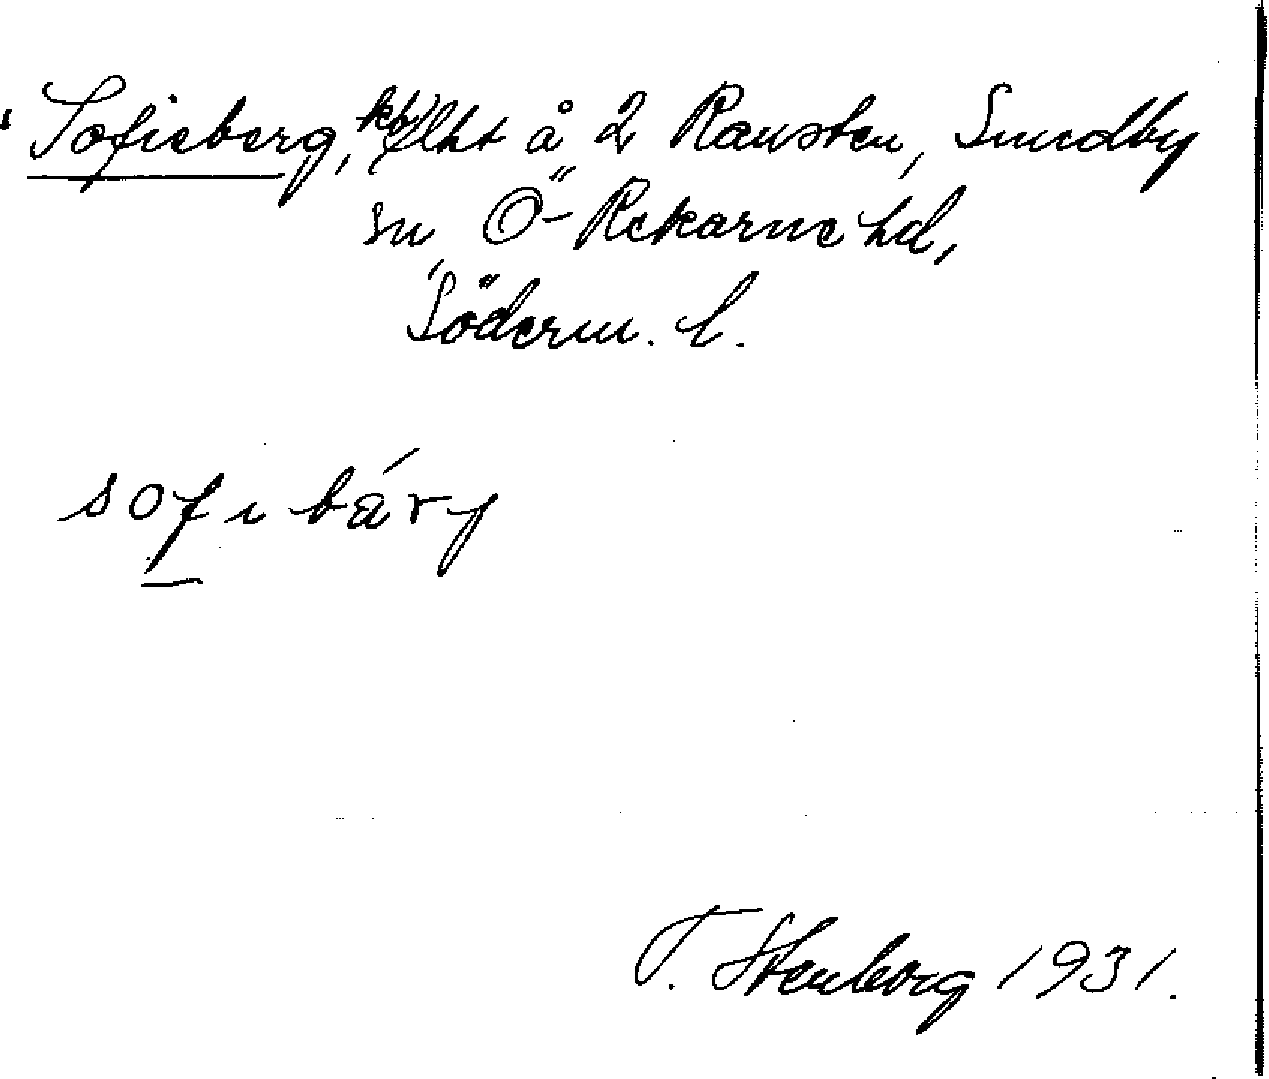 Sofieberg, lht å 2 Rausten, Sundby
sn, Ö-Rekarne hd,
Söderm. l.
sofibárj
T. Stenborg 1931.